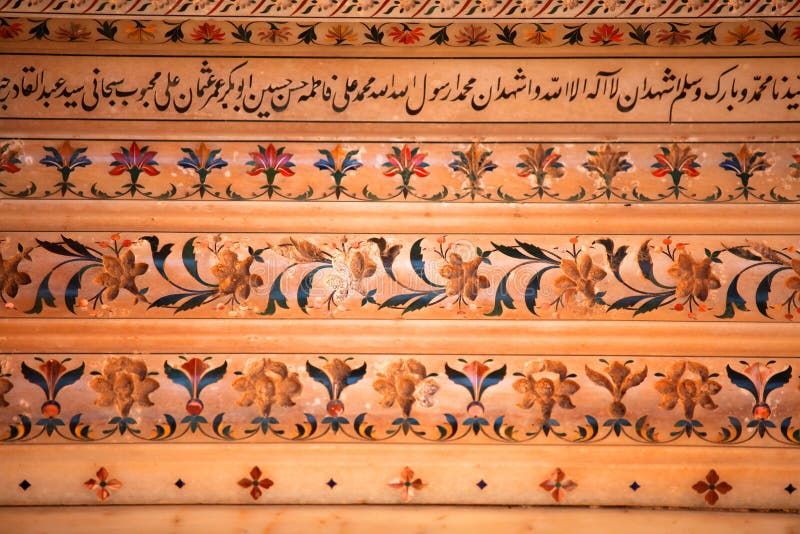 سیدنا محمد و بارک وسلم اشهدان لا اله الا الله و اشهدان محمد ارسول الله الله محمد علی فاطمه حسن حسین ابوبکر عمر عثمان علی محبوب سبحانی سید عبدالقادر